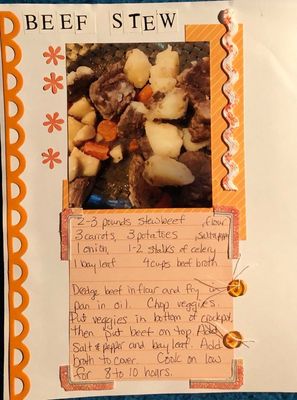 BEEF STEW
2-3 pounds stew beef, flour
3 carrots, 3 potatoes, salt & pepper
1 onion, 1-2 stalks of celery
1 bay leaf 4 cups beef broth
Dredge beef in flour and fry in
pan in oil. Chop veggies.
Put veggies in bottom of crockpot,
then put beef on top. Add
Salt & pepper and bay leaf. Add
broth to cover. Cook on low
for 8 to 10 hours.